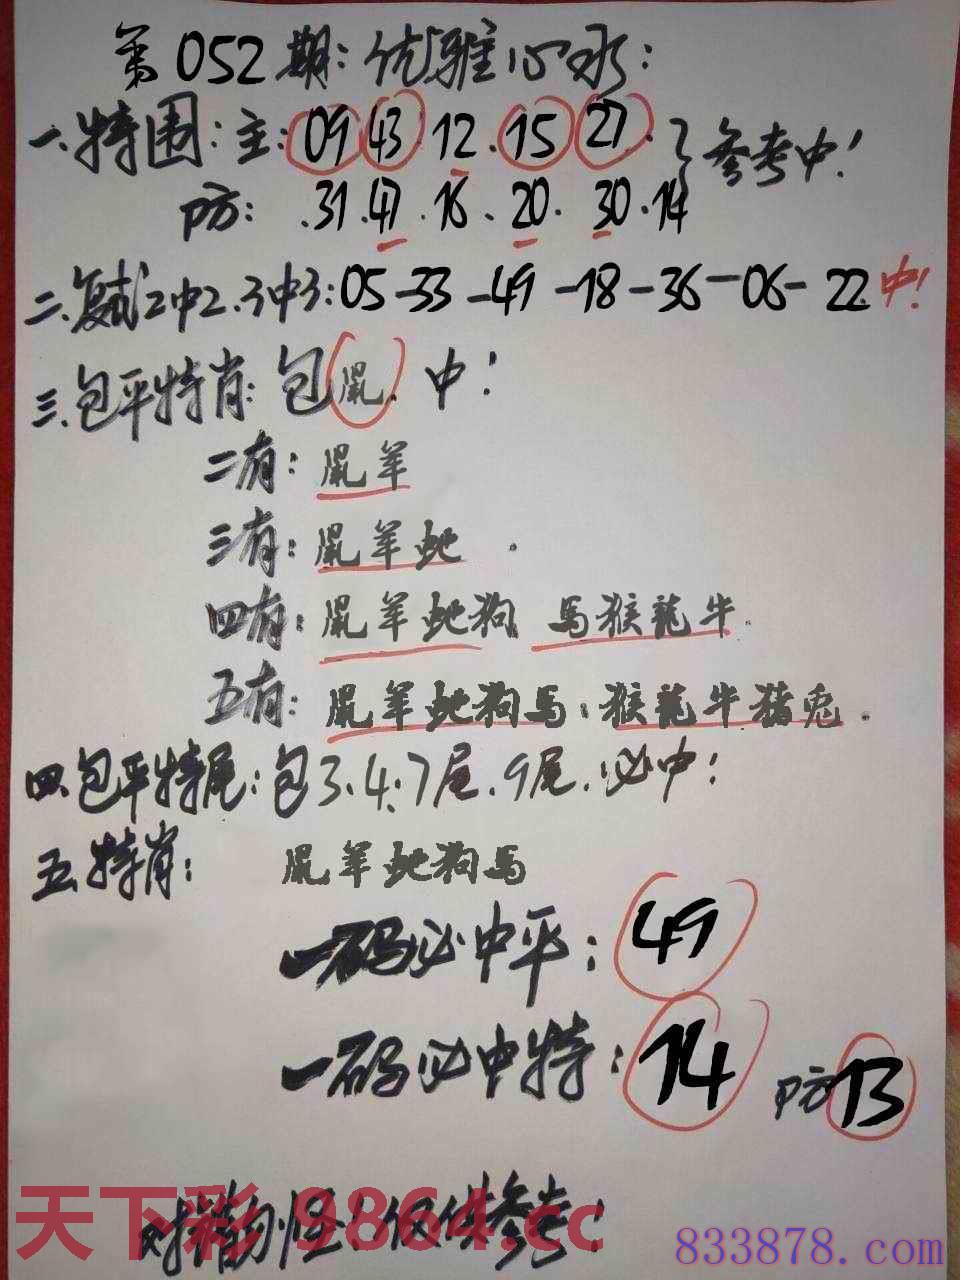 第052期:优雅心水:
一.特围:主:09 43.12.15 27.}参考中!
防:.31.47.16.20.30.14
二.复式2中2.3中3:05-33-49-18-36-06-22中!
三.包平特肖:包鼠.中!
二有:鼠羊
三有:鼠羊蛇.
四有:鼠羊蛇狗 馬猴龍牛.
五有:鼠羊蛇狗馬:猴龍牛猪兔.
四.包平特尾:包3.4:7尾.9尾.必中!
五.特肖: 鼠羊蛇狗馬
一码必中平:49
一码必中特:14 防13
对错勿怪!仅供参考!
天下彩 9864.cc
833878.com